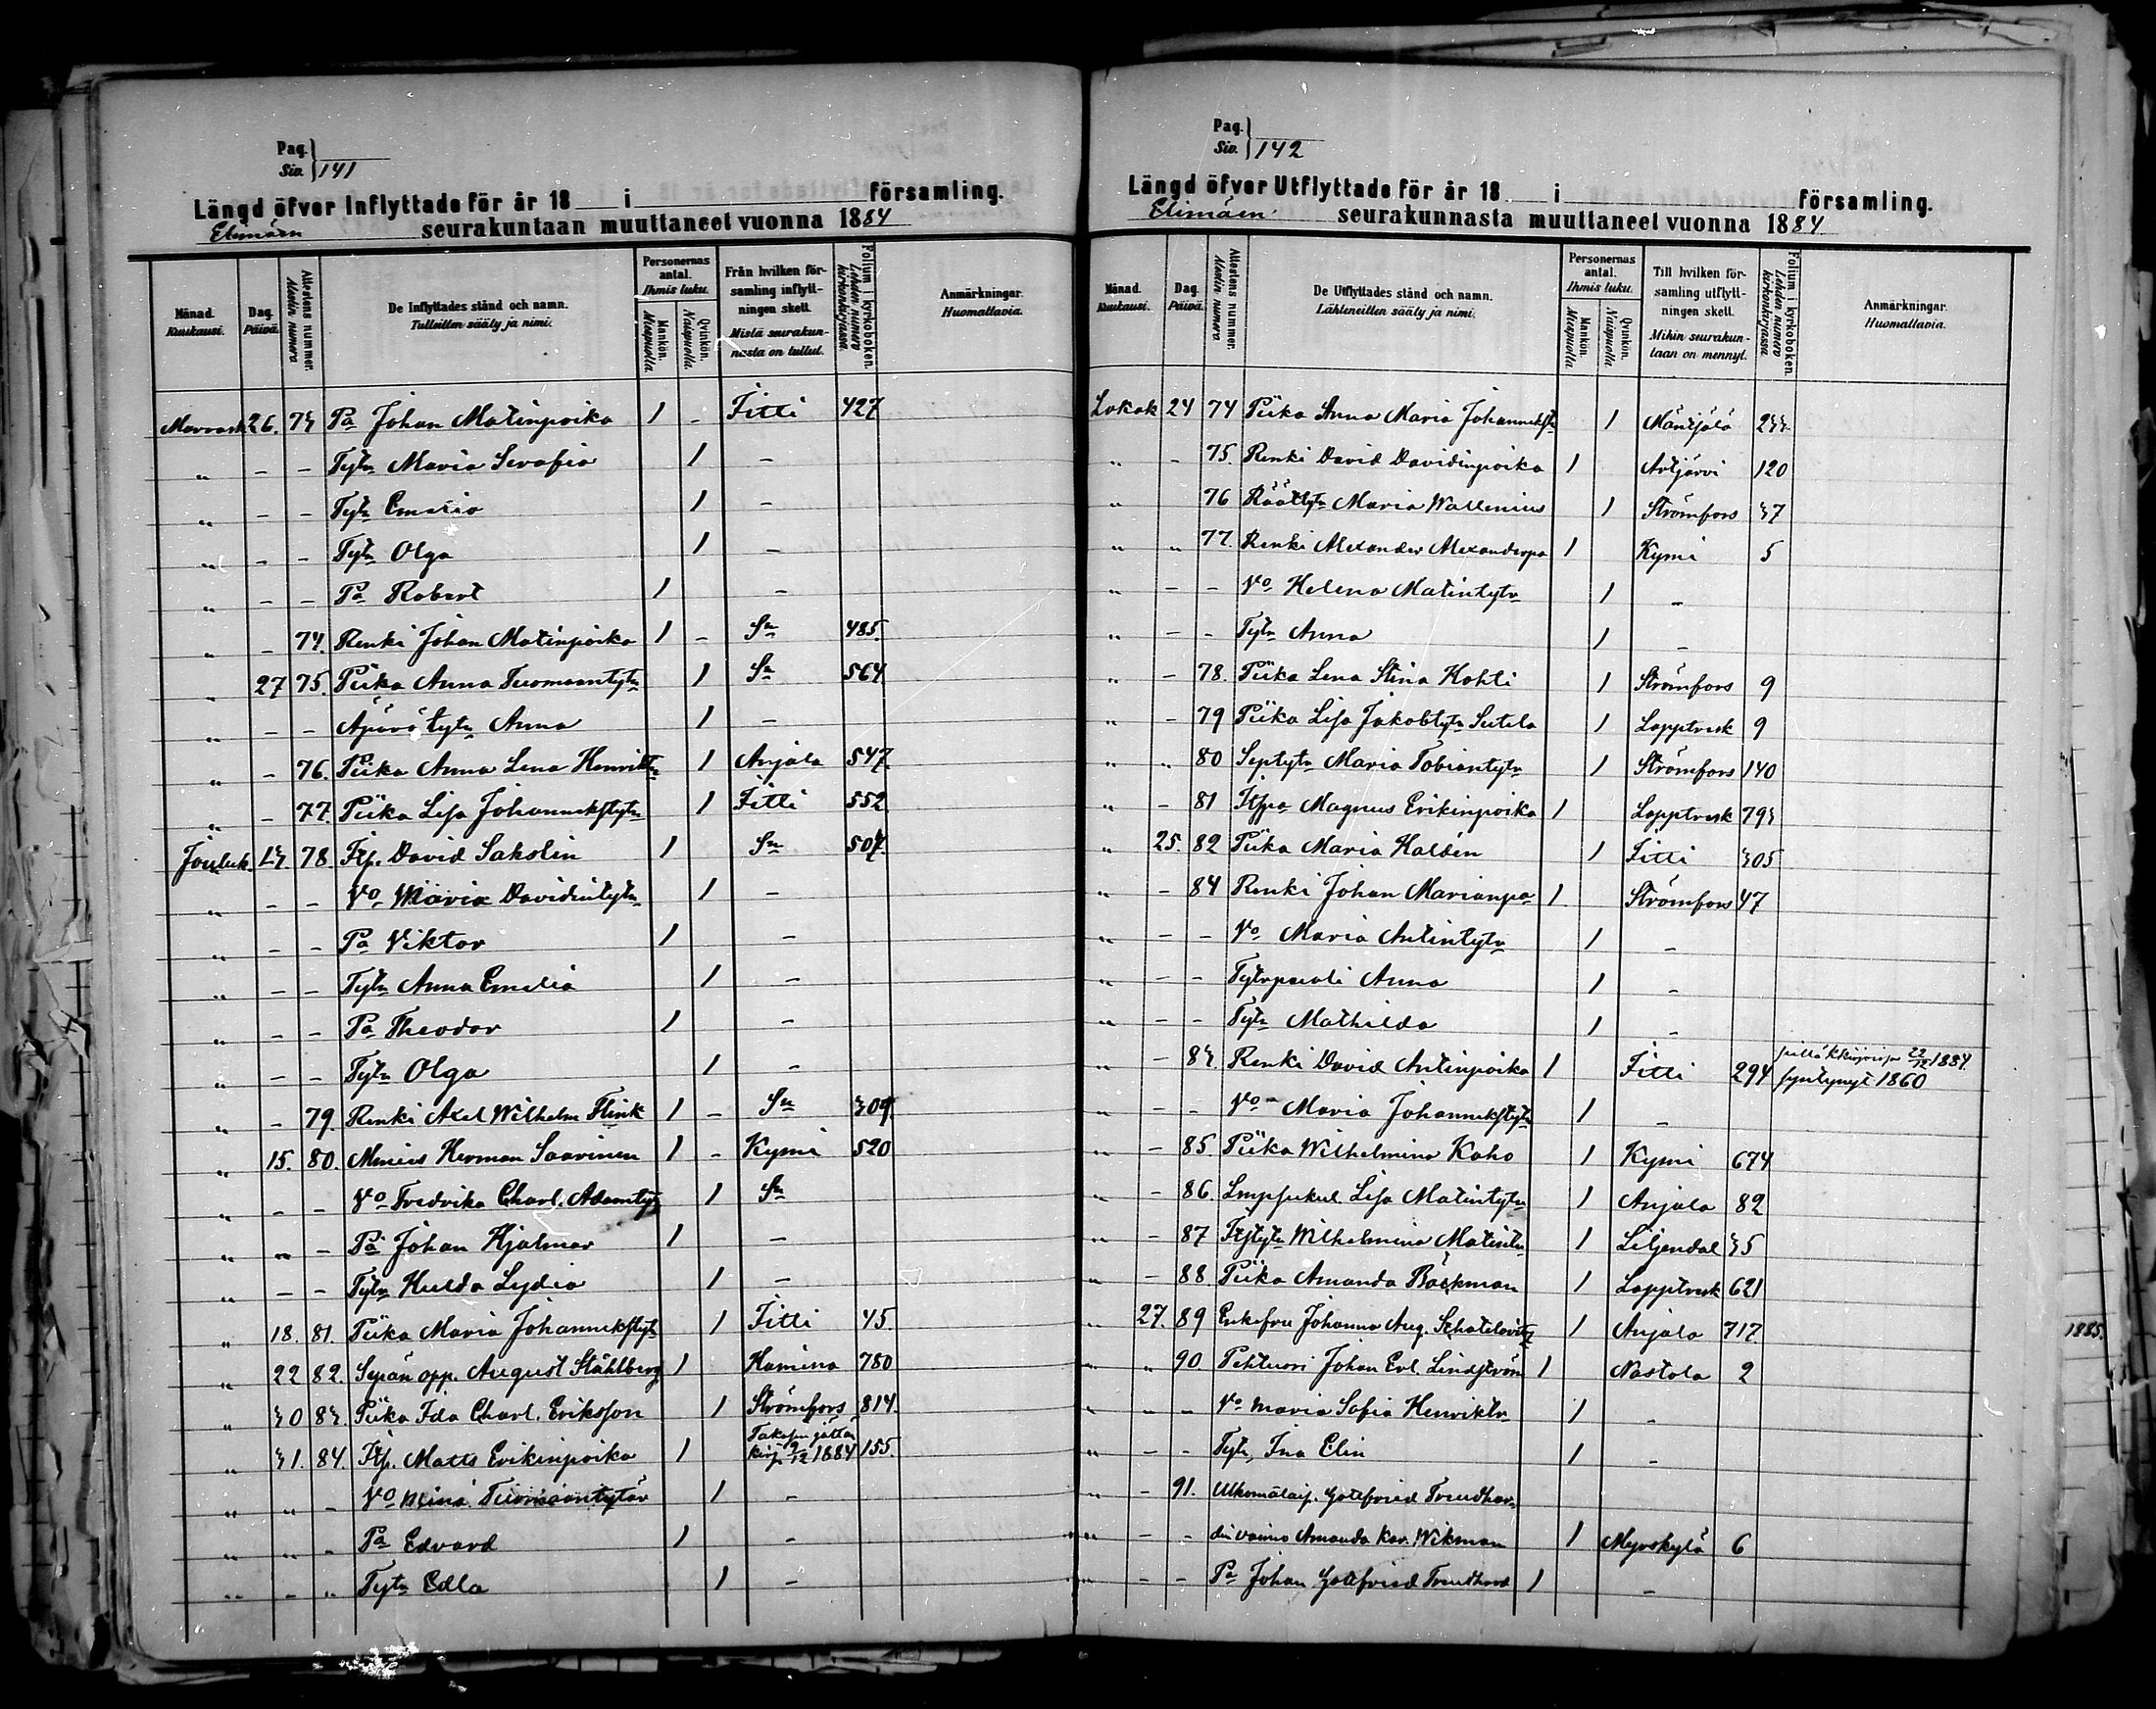 Pag.
Siv. 141
Längd öfver Inflyttade för år 18 i församling.
Elimäen seurakuntaan muuttaneet vuonna 1884
Månad. Kuukausi.
Dag. Päivä.
Attestens nummer. Atestin numero
De Inflyttades stånd och namn. Tulleitten sääty ja nimi.
Personernas antal. Ihmis luku.
Mankön. Miespuolia
Qvinkön. Naispuolia
Från hvilken församling inflyttningen skett. Mistä seurakunnasta on tullut.
Folium i kyrkoboken. Lehden numero kirkonkirjassa.
Anmärkningar. Huomattavia.
Marrask 26. 73 Pa Johan Matinpoika 1 - Iitti 427
" - - Tytr Maria Serafia 1 -
" - - Tytr Emelia 1 -
" - - Tytr Olga 1 -
" - - Pa Robert 1 -
" - 74. Renki Johan Matinpoika 1 - Sn 485.
" 27 75. Piika Anna Tuomaantytr 1 Sn 564
" - - Äpärätytr Anna 1 -
" - 76. Piika Anna Lena Henriktr 1 Anjala 547.
" - 77. Piika Lisa Johanneksftytr 1 Iitti 552
Jouluk. 13. 78. Itp. David Sakslin 1 Sn 507.
" - - Vo Maria Davidintytr 1 -
" - - Pa Viktor 1 -
" - - Tytr Anna Emelia 1 -
" - - Pa Theodor 1 -
" - - Tytr Olga 1 -
" - 79. Renki Axel Wilhelm Flink 1 - Sn 309
" 15. 80. Muurs Herman Saarinen 1 - Kymi 520
" - - Vo Fredrika Charl. Adamtyt 1 Sn
" - - Pa Johan Hjalmar 1 -
" - - Tytr Hulda Lydia 1 -
" 18. 81. Piika Maria Johanneksftytr 1 Iitti 45.
" 22 82. Sepän opp. August Ståhlberg 1 Hamina 780
" 30 83. Piika Ida Charl. Eriksson 1 Strömfors 814.
" 31. 84. Itp. Matts Erikinpoika 1 Takasin jättän kirj. 9/12 1884 155.
" " - Vo Miina Tuomaantytär 1 -
" " - Pa Edvard 1 -
" - " Tytr Edla 1 -
Pag.
Siv. 142
Längd öfver Utflyttade för år 18 i församling.
Elimäen seurakunnasta muuttaneet vuonna 1884
Månad. Kuukausi.
Dag. Päivä.
Attestens nummer. Atestin numero
De Utflyttades stånd och namn. Lähteneitten sääty ja nimi.
Personernas antal. Ihmis luku.
Mankön. Miespuolia
Qvinkön. Naispuolia
Till hvilken församling utflyttningen skett. Mihin seurakuntaan on mennyt.
Folium i kyrkoboken. Lehden numero kirkonkirjassa.
Anmärkningar. Huomattavia.
Lokak 24 74 Piika Anna Maria Johannekstr 1 Mäntjälä 233
" - 75. Renki David Davidinpoika 1 Artjärvi 120
" 76 Räättytr Maria Wallenius 1 Strömfors 37
" " 77. Renki Alexander Alexanderpo 1 Kymi 5
" - - Vo Helena Matintytr 1 -
" - - Tytr Anna 1 -
" - 78. Piika Lena Stina Kohti 1 Strömfors 9
" - 79 Piika Lisa Jakobtytr Seitela 1 Lapptresk 9
" " 80 Septytr Maria Tobiantytr 1 Strömfors 140
" - 81 Itspo Magnus Erikinpoika 1 Lapptresk 793
" 25. 82 Piika Maria Haldén 1 Iitti 305
" - 84 Renki Johan Marianpo 1 Strömfors 47
" - - Vo Maria Antintytr 1 -
" - - Tytrpuoli Anna 1 -
" - - Tytr Mathilda 1 -
" - 83. Renki David Antinpoika 1 Iitti 294 22/12 1884. syntynyt 1860
" - - Vo Maria Johanneksftytr 1 -
" - 85 Piika Wilhelmina Kaho 1 Kymi 674
" - 86. Lisa Matintytr 1 Anjala 82
" - 87 Itstytr Wilhelmina Matintr 1 Liljendal 35
" - 88 Piika Amanda Bäckman 1 Lapptresk 621
" 27. 89 Enkefru Johanna Aug. Schatelovitz 1 Anjala 717.
" " 90 Pehtuori Johan Evl. Lindström 1 Nastola 2
" - - Vo Maria Sofia Henriktr 1 -
" - - Tytr, Ina Elin 1 -
" - 91. Ulkomalaisp. Gottfried Treudhar-
" - - din vaimo Amanda Kar. Wikman 1 Myrskylä 6
" - - Pa Johan Gottfried Treudhard 1 -
1885.